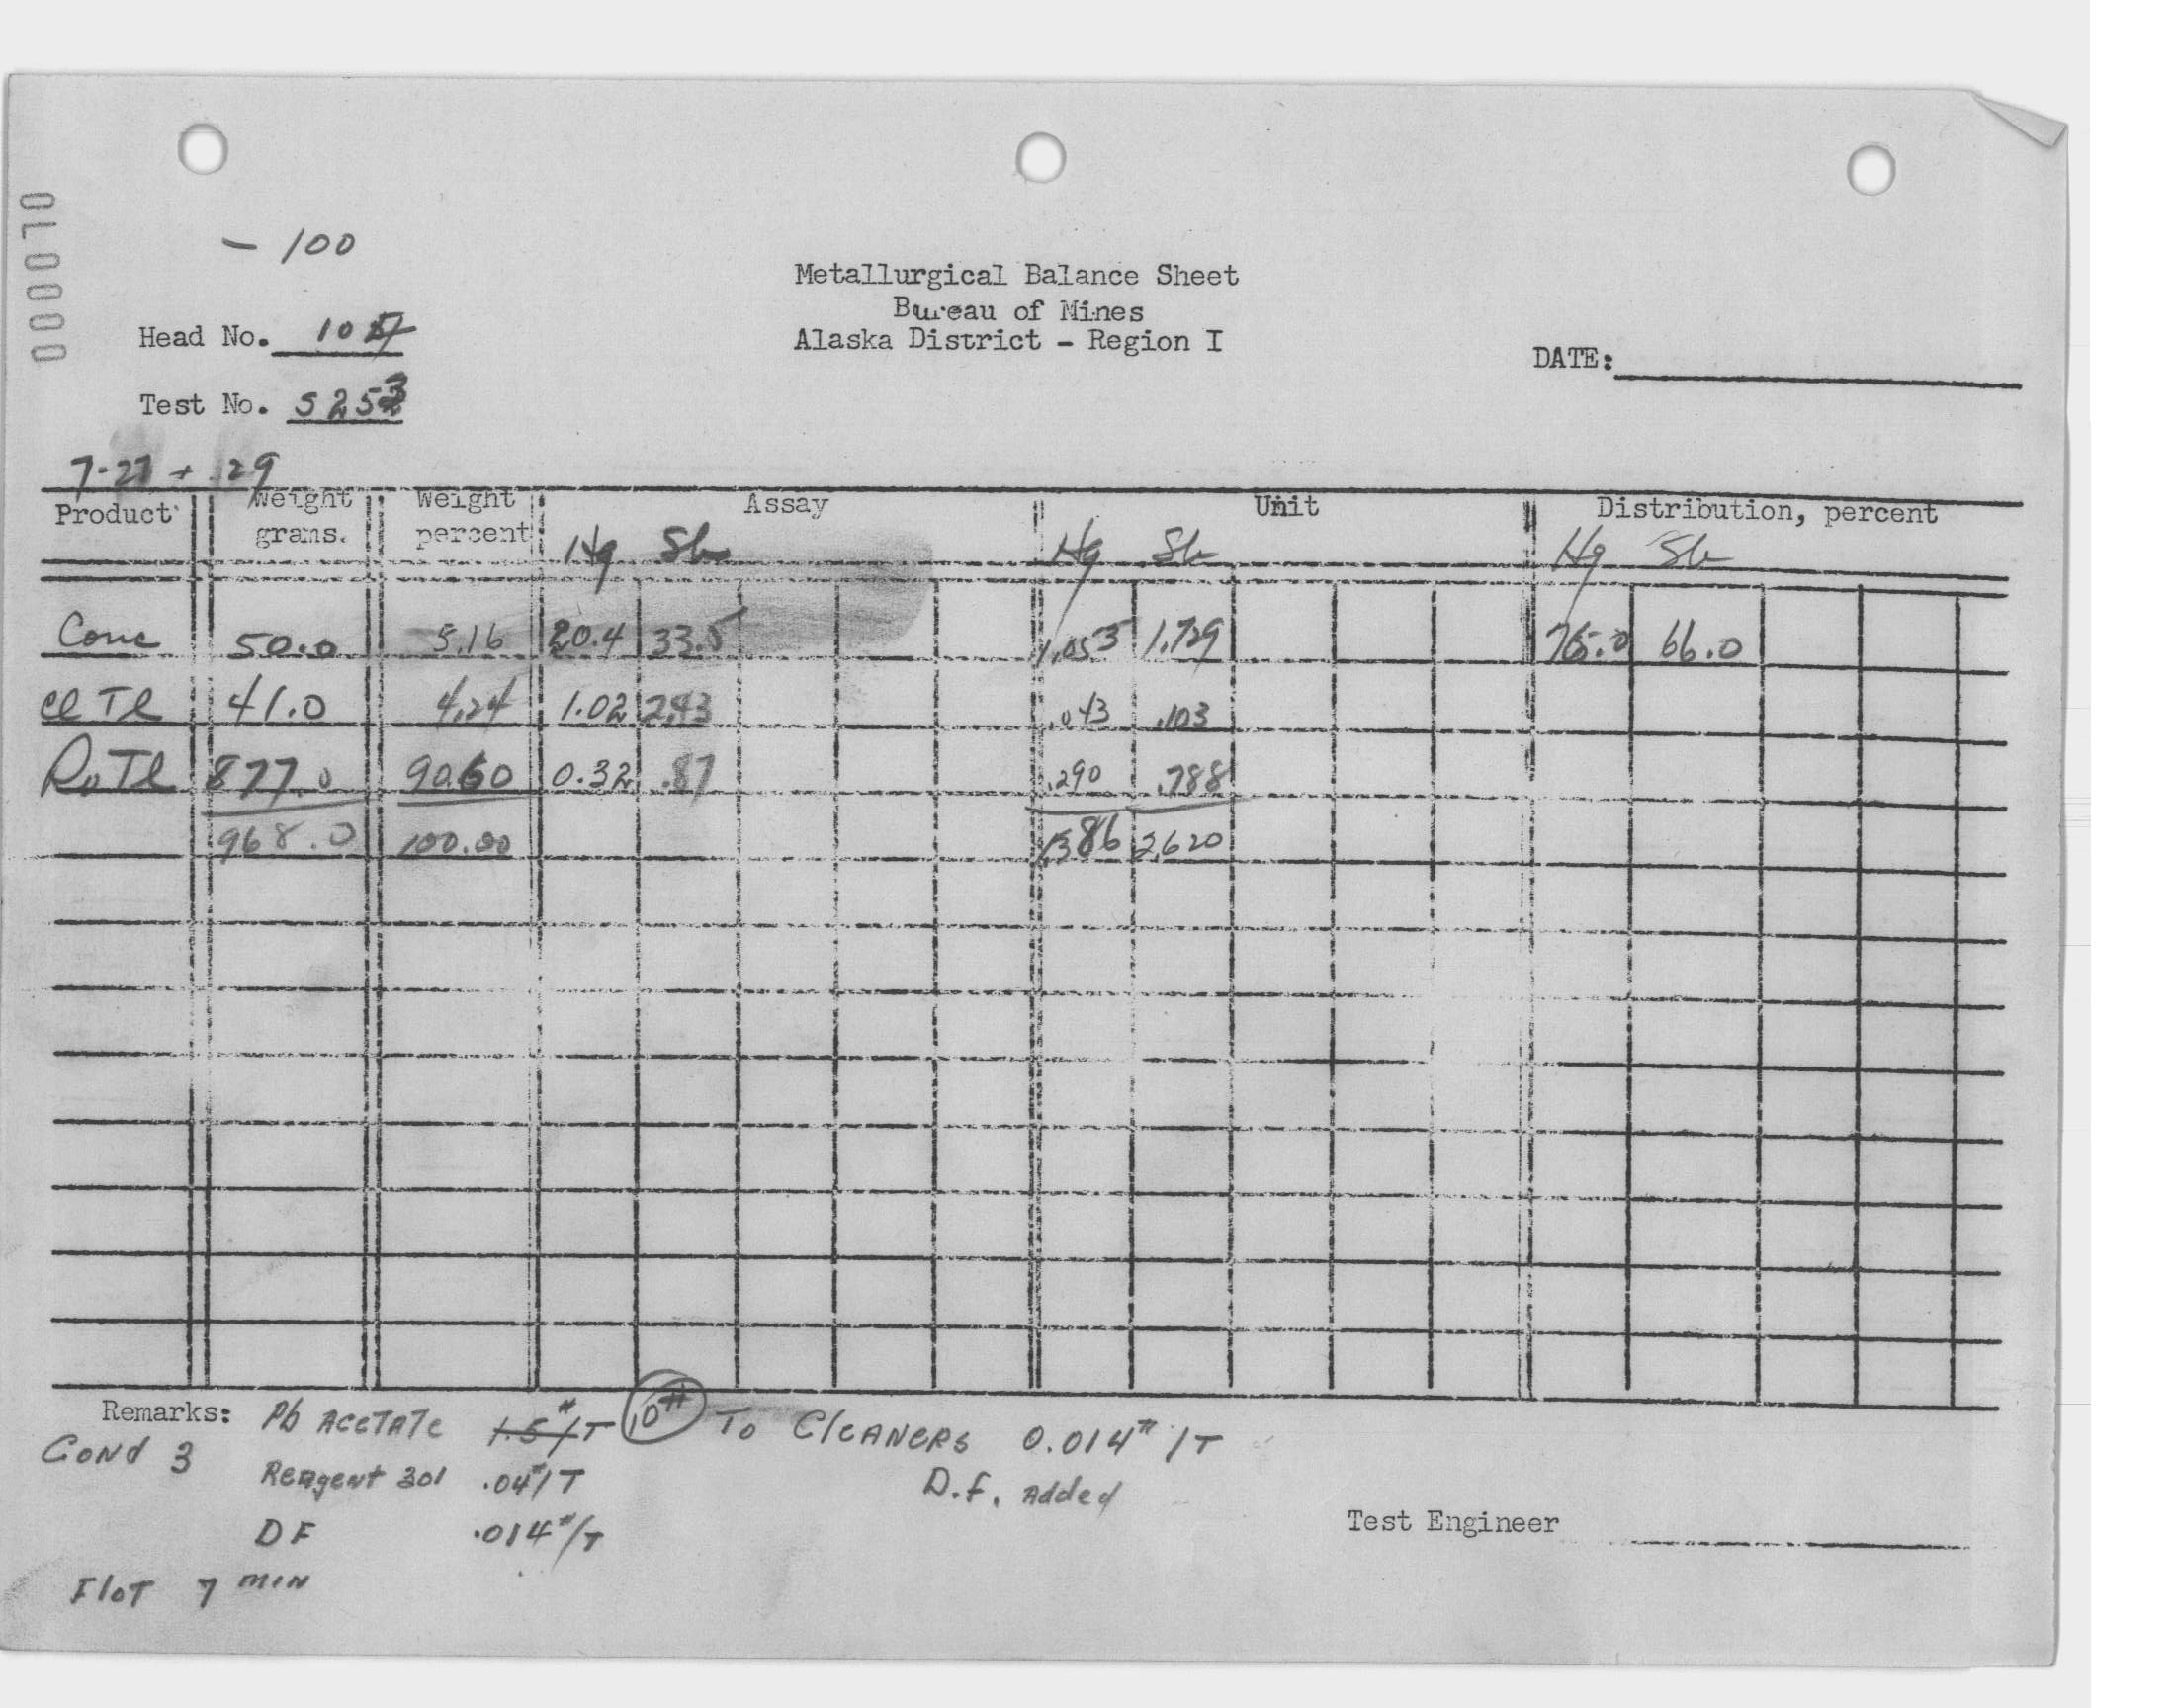 000070
- 100
Metallurgical Balance Sheet
Bureau of Mines
Alaska District - Region I
Head No. 105
DATE:
Test No. 5253
7-27 + 29
Product Weight grams. Weight percent Assay Unit Distribution, percent
Hg Sb Hg Sb Hg Sb
Conc 50.0 5.16 20.4 33.5 1.053 1.729 76.0 66.0
Cl Tl 41.0 4.24 1.02 2.43 .043 .103
Ro Tl 877.0 90.60 0.32 .87 .290 .788
968.0 100.00 1.386 2.620
Remarks: Pb Acetate 1.5#/T 10# To Cleaners 0.014#/T
Cond 3 Reagent 301 .04#/T D.f. Added
DF .014#/T
Test Engineer
Flot 7 min